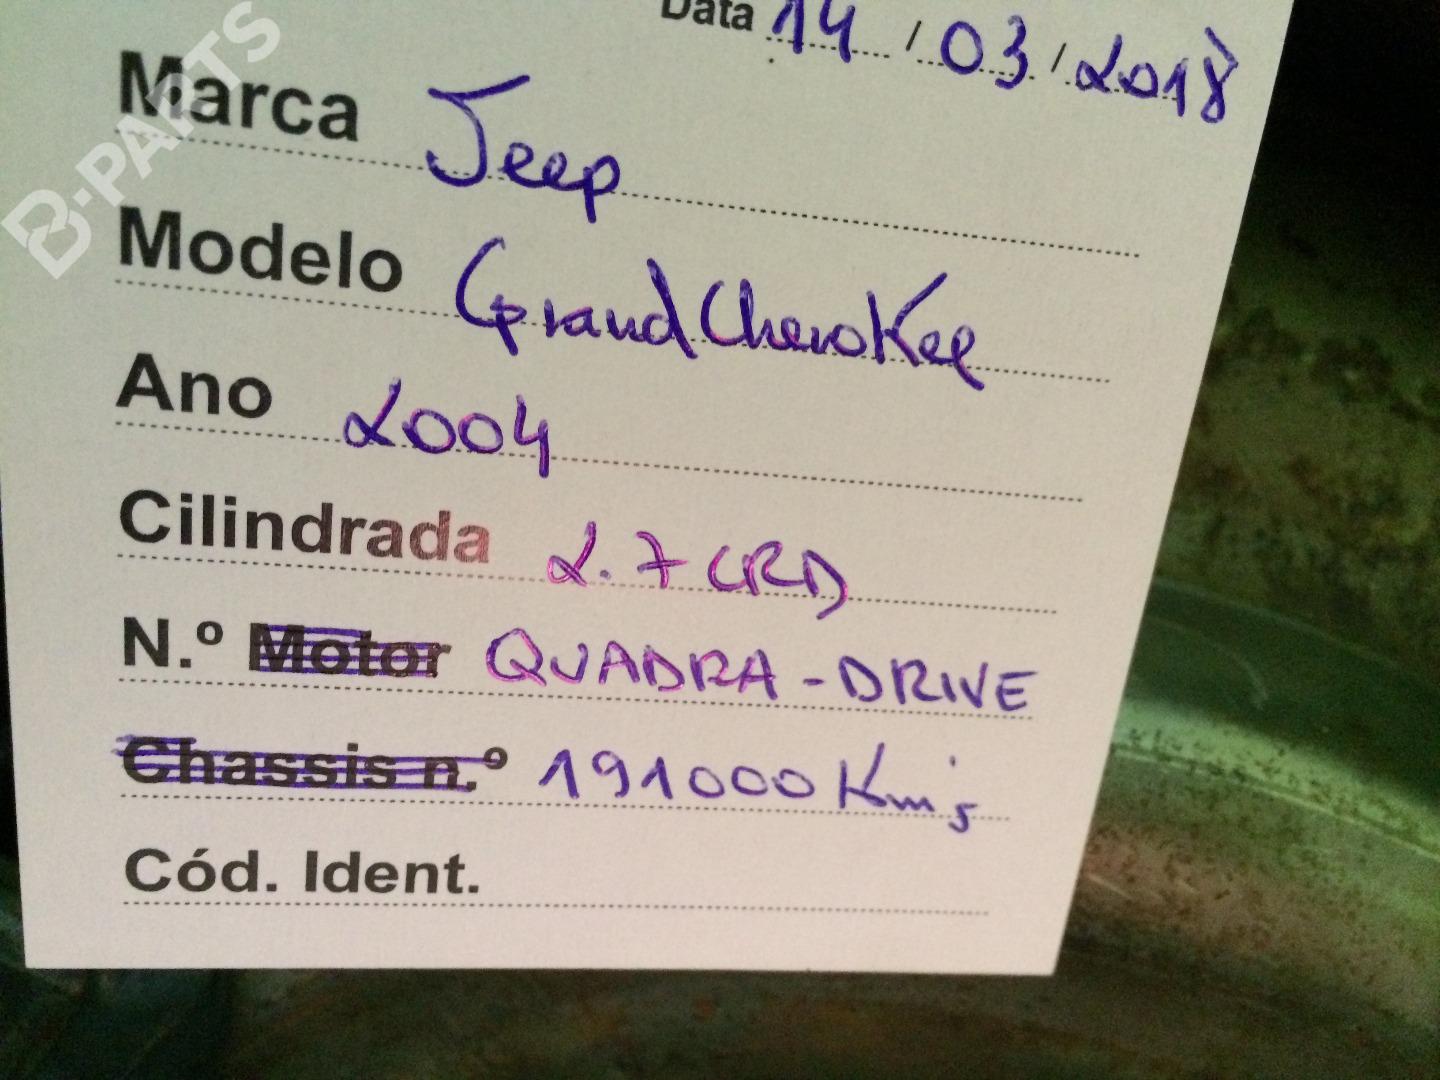 Data 14 / 03 / 2018
Marca Jeep
Modelo Grand Cherokee
Ano 2004
Cilindrada 2.7 CRD
N.º Motor QUADRA-DRIVE
Chassis n.º 191000 Km's
Cód. Ident.
B-PARTS